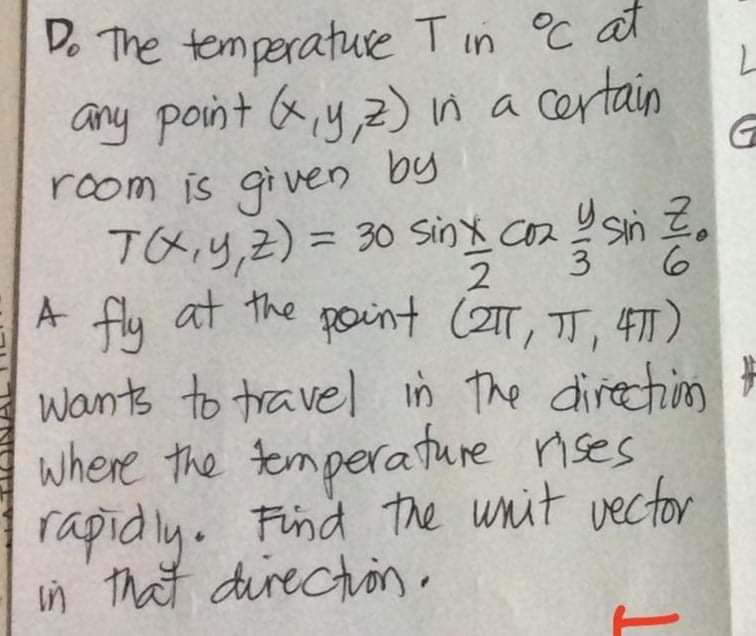 D. The temperature T in °C at
any point (x,y,z) in a certain
room is given by
T(x,y,z) = 30 sin x/2 cos y/3 sin z/6.
A fly at the point (2π, π, 4π)
wants to travel in the direction
where the temperature rises
rapidly. Find the unit vector
in that direction.